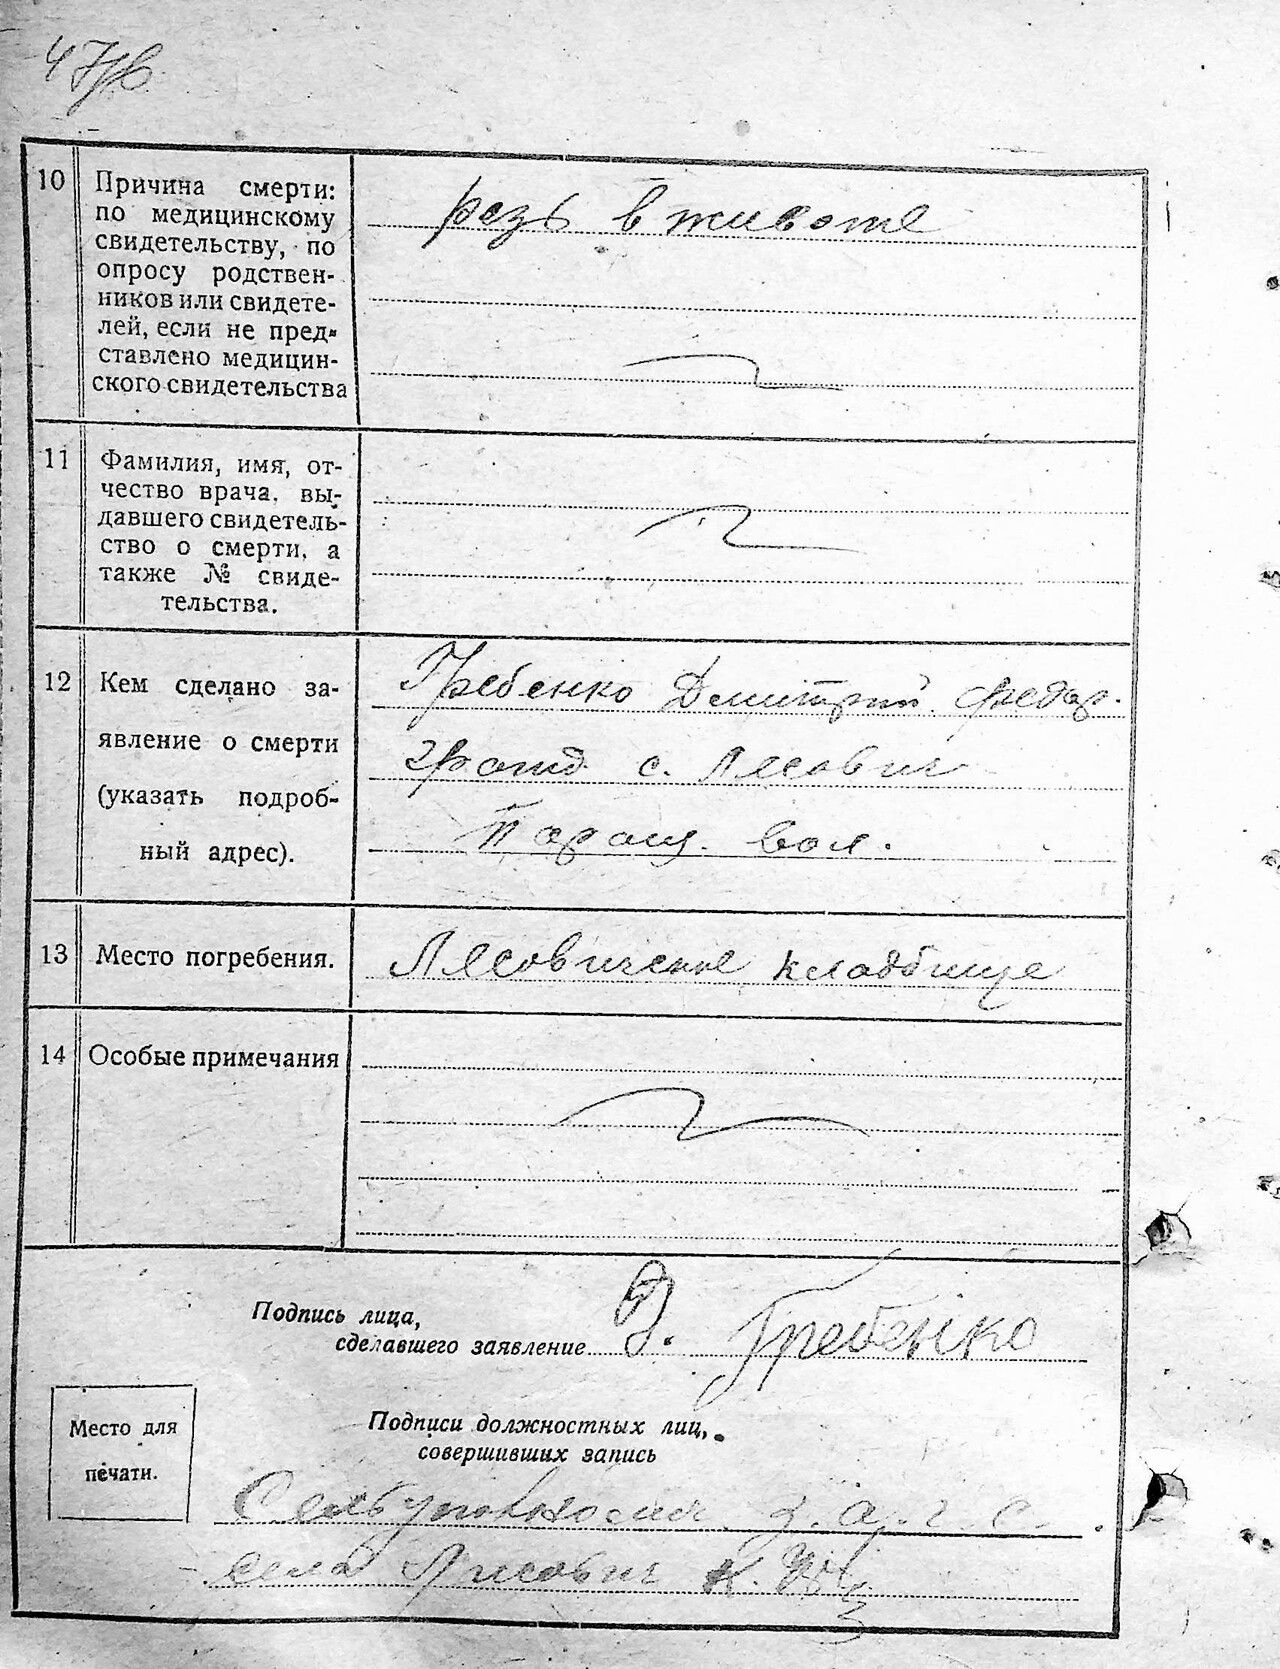 47
10 Причина смерти:
по медицинскому
свидетельству, по
опросу родствен-
ников или свидете-
лей, если не пред-
ставлено медицин-
ского свидетельства
резь в животе
11 Фамилия, имя, от-
чество врача, вы-
давшего свидетель-
ство о смерти, а
также № свиде-
тельства.
12 Кем сделано за-
явление о смерти
(указать подроб-
ный адрес).
Гребенко Дмитрий Федор.
с. Лесович
Таращ. вол.
13 Место погребения.
Лесовичское кладбище
14 Особые примечания
Подпись лица,
сделавшего заявление
Гребенко
Место для
печати.
Подписи должностных лиц,
совершивших запись
з.а.г.с.
села Лисович